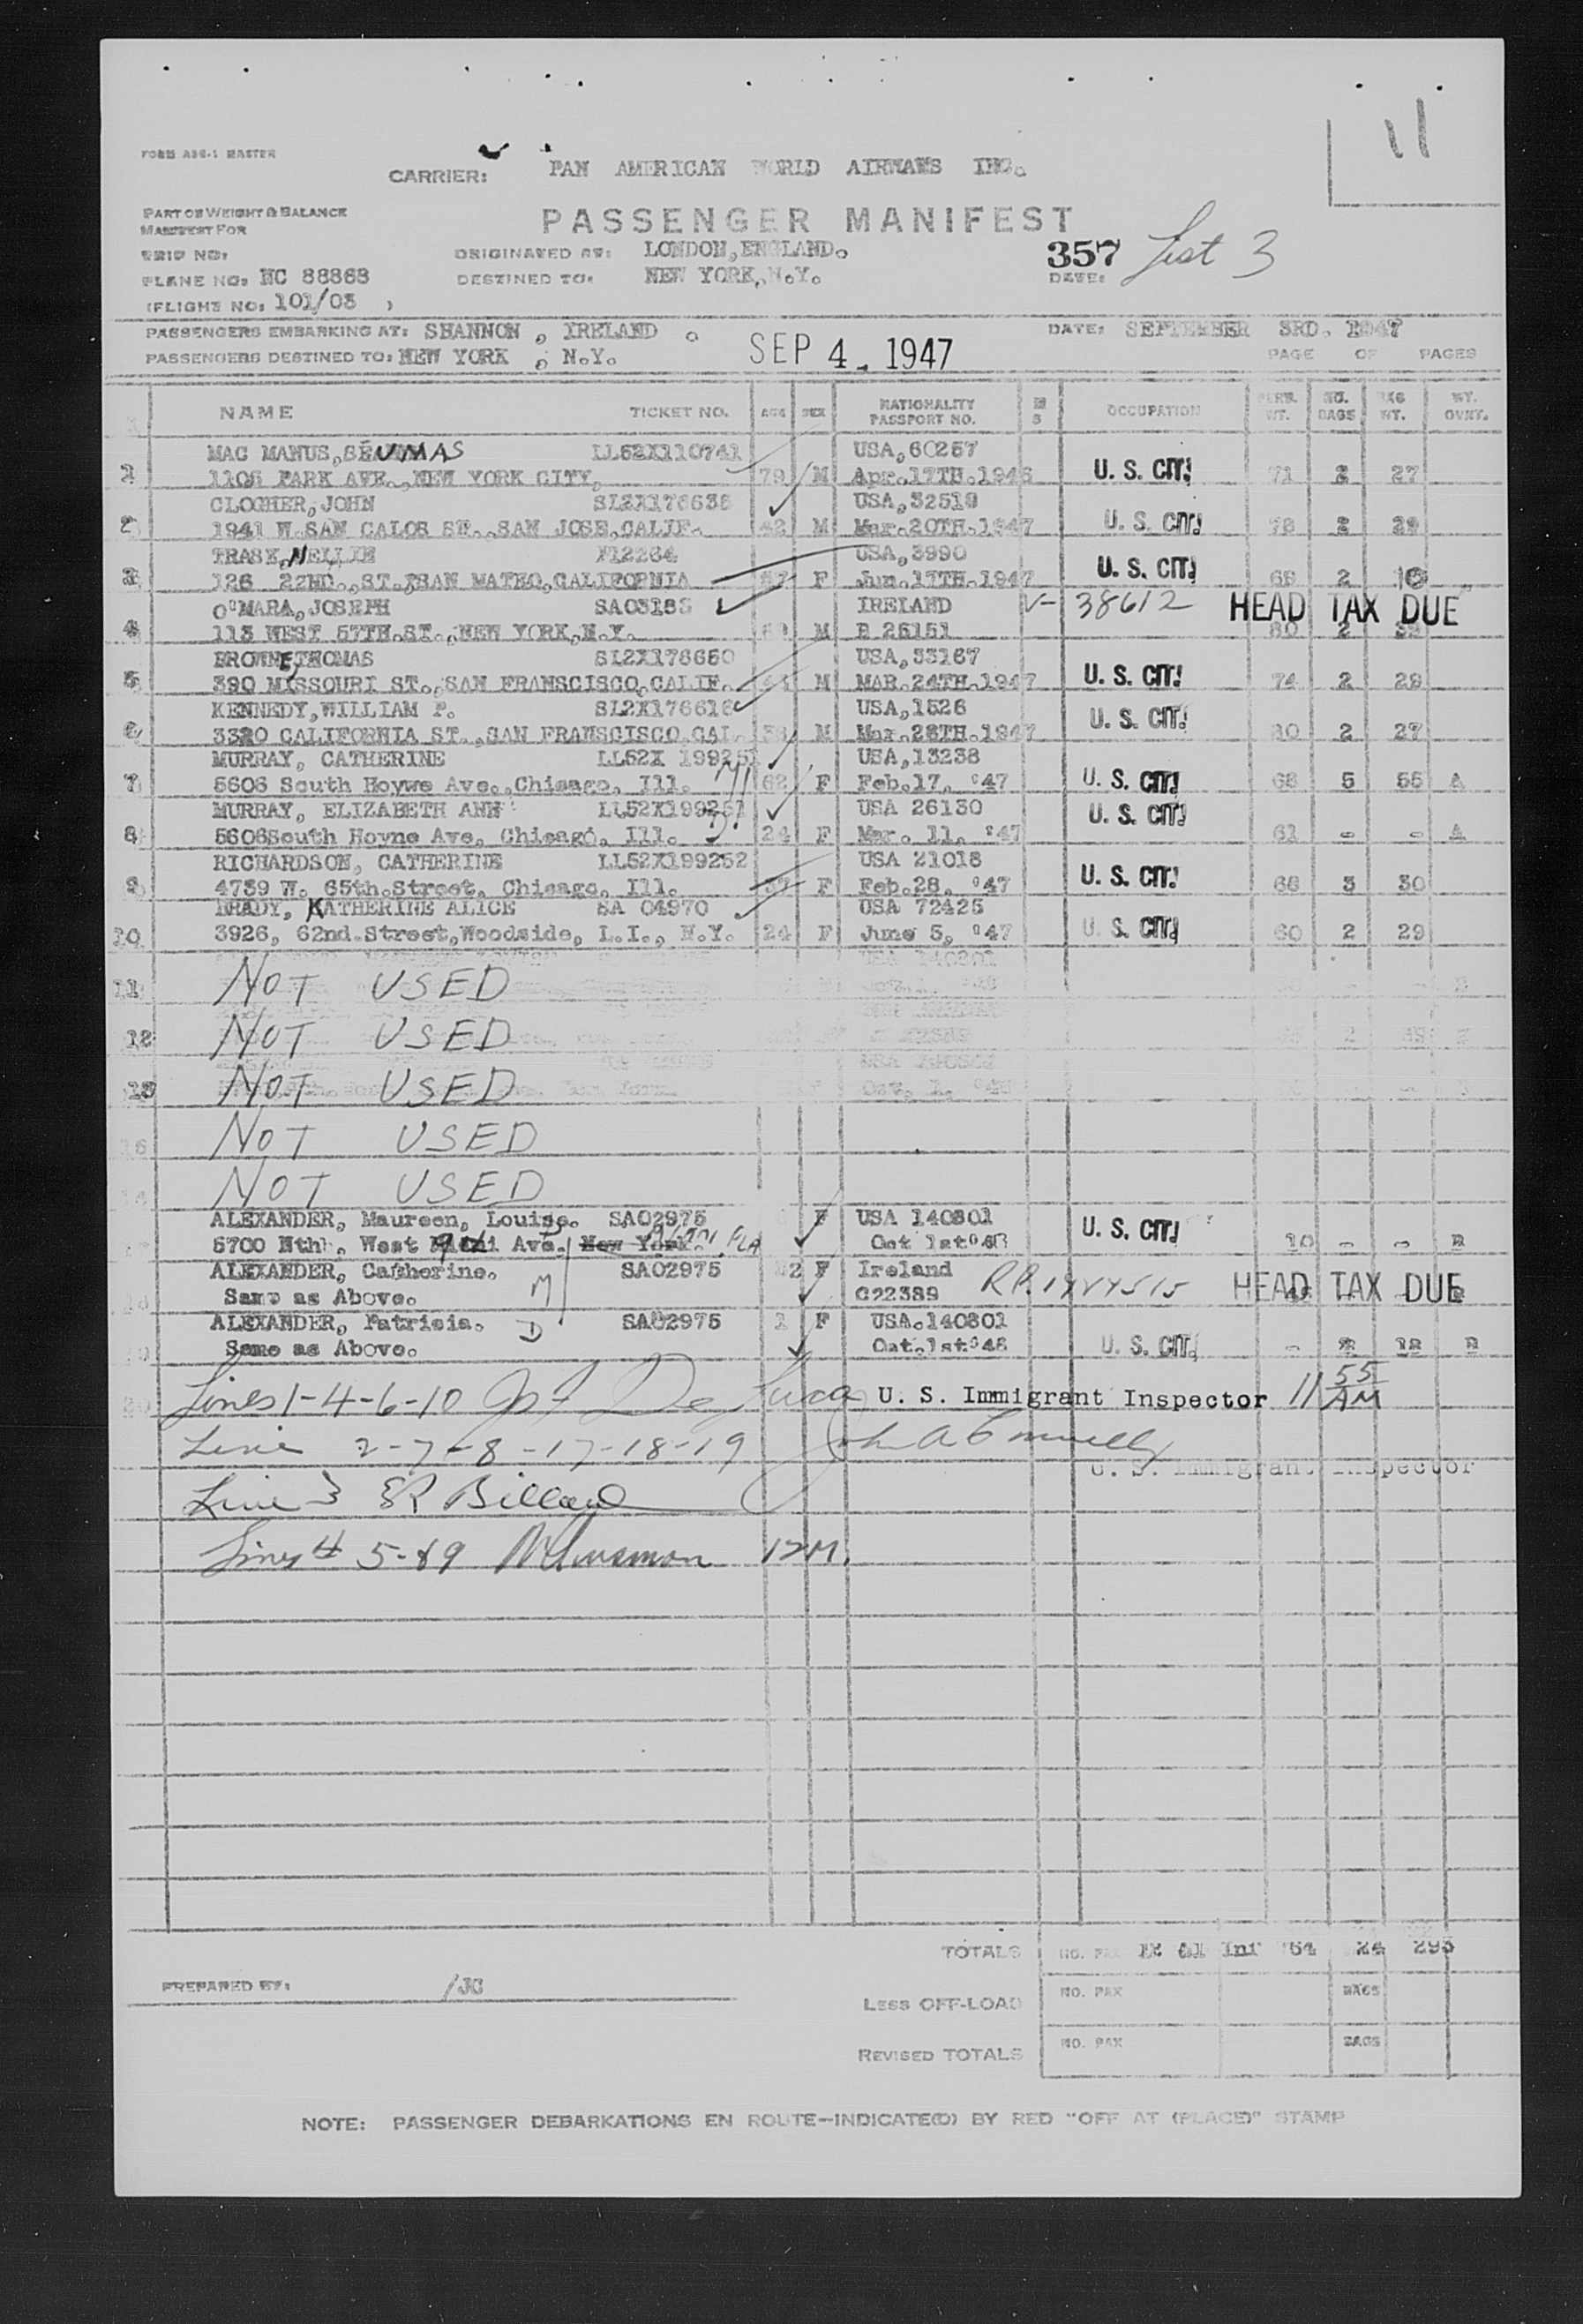 11
FORM ASG-1 MASTER
CARRIER: PAN AMERICAN WORLD AIRWAYS INC.
PART OF WEIGHT & BALANCE
MANIFEST FOR
PASSENGER MANIFEST
TRIP NO: ORIGINATED AT: LONDON, ENGLAND. 357 List 3
PLANE NO: NC 88868 DESTINED TO: NEW YORK, N.Y. DATE:
(FLIGHT NO: 101/03 )
PASSENGERS EMBARKING AT: SHANNON, IRELAND. DATE: SEPTEMBER 3RD. 1947
PASSENGERS DESTINED TO: NEW YORK, N.Y. SEP 4. 1947 PAGE OF PAGES
NAME TICKET NO. AGE SEX NATIONALITY PASSPORT NO. M S OCCUPATION PERS. WT. NO. BAGS BAG WT. WT. OVNT.
MAC MANUS, SEUMAS LL52X110741 USA, 60257
1 1105 PARK AVE., NEW YORK CITY, 79 M Apr. 17TH. 1946 U. S. CIT. 71 2 27
CLOGHER, JOHN SL2X176635 USA, 32519
2 1941 W. SAN CALOS ST., SAN JOSE, CALIF. 42 M Mar. 20TH. 1947 U. S. CIT. 78 2 29
TRASK, NELLIE X12264 USA, 3990
3 126 22ND., ST., SAN MATEO, CALIFORNIA F Jun. 17TH. 1947 U. S. CIT. 68 2
O'MARA, JOSEPH SA03183 IRELAND V- 38612 HEAD TAX DUE
4 113 WEST 57TH. ST., NEW YORK, N.Y. M R 25151 80 2
BROWNE, THOMAS SL2X176650 USA, 33167
5 390 MISSOURI ST., SAN FRANSCISCO, CALIF. M MAR. 24TH. 1947 U. S. CIT. 74 2 29
KENNEDY, WILLIAM P. SL2X176616 USA, 1526
6 3320 CALIFORNIA ST., SAN FRANSCISCO, CAL. M Mar. 28TH. 1947 U. S. CIT. 80 2 27
MURRAY, CATHERINE LL52X 199251 USA, 13238
7 5606 South Hoywe Ave., Chicago, Ill. M 62 F Feb. 17. '47 U. S. CIT. 68 5 55 A
MURRAY, ELIZABETH ANN LL52X199251 USA 26130
8 5606South Hoyne Ave, Chicago, Ill. D 24 F Mar. 11. '47 U. S. CIT. 61 - - A
RICHARDSON, CATHERINE LL52X199252 USA 21018
9 4739 W. 65th. Street, Chicago, Ill. 37 F Feb. 28. '47 U. S. CIT. 66 3 30
BRADY, KATHERINE ALICE SA 04970 USA 72425
10 3926, 62nd. Street, Woodside, L.I., N.Y. 24 F June 5, '47 U. S. CIT. 60 2 29
11 NOT USED
12 NOT USED
13 NOT USED
NOT USED
NOT USED
ALEXANDER, Maureen, Louise. SA02975 F USA 140801
5700 Nth., West 9th Ave. New York. Miami FLA Oct 1st '46 U. S. CIT. 10 - - B
ALEXANDER, Catherine. SA02975 F Ireland
Same as Above. M G22389 R.P. 1484515 HEAD TAX DUE
ALEXANDER, Patricia. SA02975 1 F USA. 140801
Same as Above. D Oct. 1st '46 U. S. CIT. - 2 B
Lines 1-4-6-10 Jos De Luca U. S. Immigrant Inspector 11 55 AM
Line 2-7-8-17-18-19 John A
U. S. Immigrant Inspector
Line 3 ER Billard
Lines # 5-&9 12M.
TOTALS NO. PAX 24 293
PREPARED BY: /JC
LESS OFF-LOAD NO. PAX BAGS
REVISED TOTALS NO. PAX BAGS
NOTE: PASSENGER DEBARKATIONS EN ROUTE—INDICATE(D) BY RED "OFF AT (PLACE)" STAMP